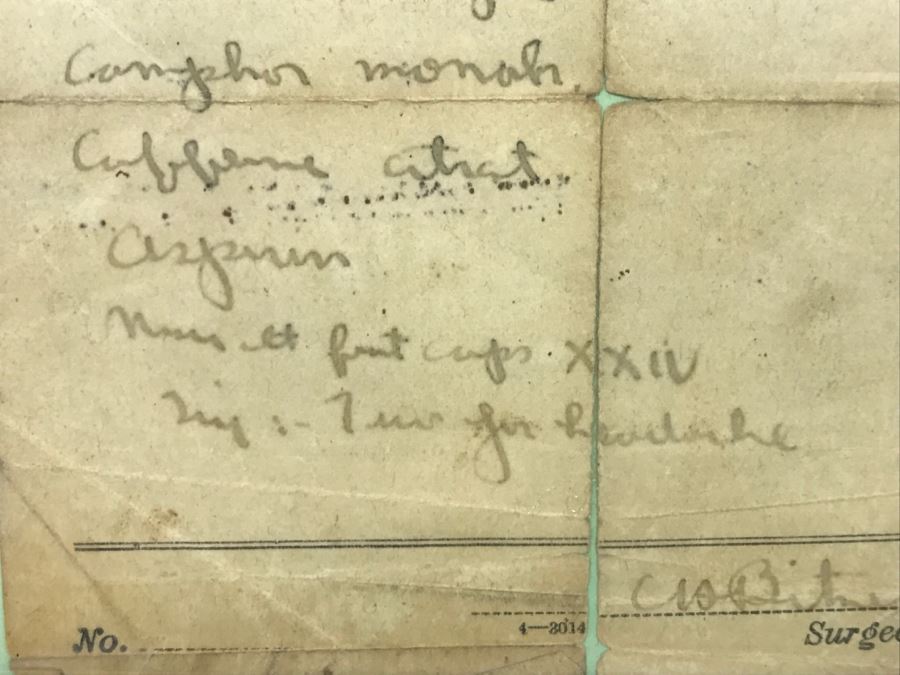 Camphor monobr.
Caffeine citrat
Aspirin
Misce et fiat caps XXIV
Sig :- Two for headache
4—3014
No.
Surgeo